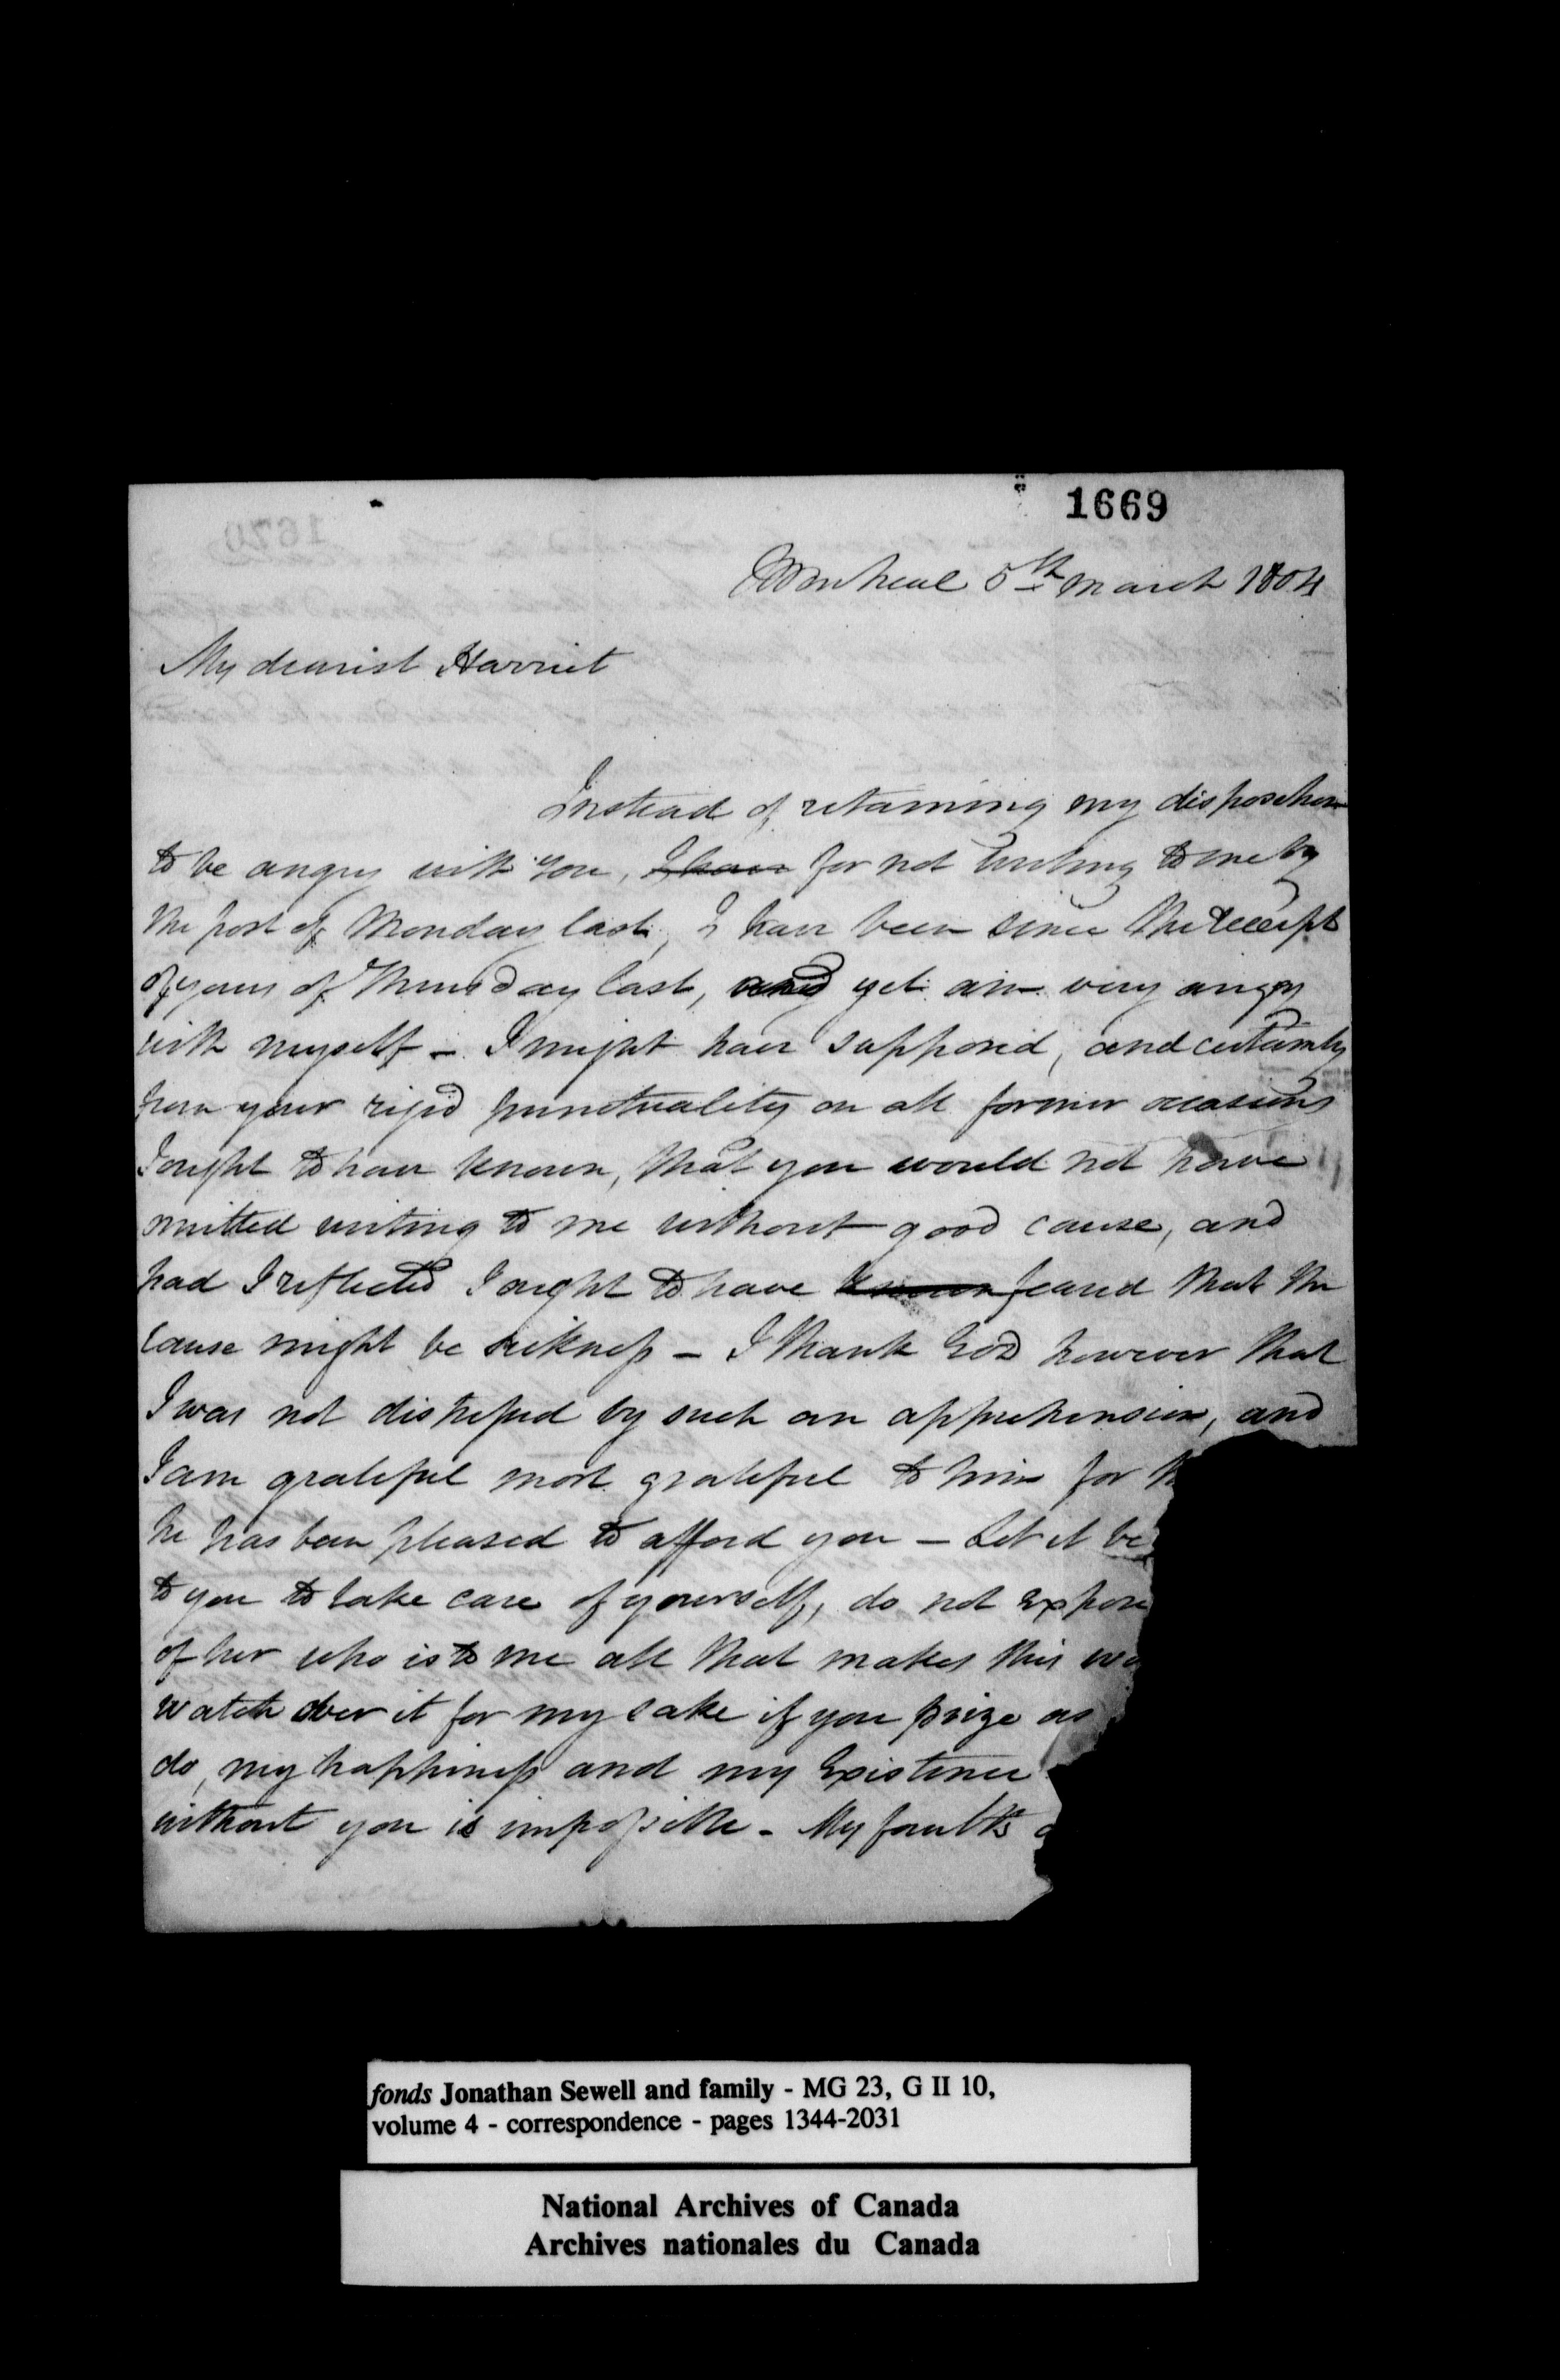 1669
Montreal 5th March 1804
My dearest Harriet
Instead of retaining my disposition
to be angry with you, I have for not writing to me by
the post of Monday last, I have been since the receipt
of yours of Thursday last, and yet am very angry
with myself - I might have supposed, and certainly
from your rigid punctuality on all former occasions
I ought to have known, that you would not have
omitted writing to me without good cause, and
had I reflected I ought to have known feared that the
cause might be sickness - I thank God however that
I was not distressed by such an apprehension, and
I am grateful most grateful to him for
he has been pleased to afford you - Let it be
to you to take care of yourself, do not expose
of her who is to me all that makes this
watch over it for my sake if you prize as
do, my happiness and my existence
without you is impossible - My faults
fonds Jonathan Sewell and family - MG 23, G II 10,
volume 4 - correspondence - pages 1344-2031
National Archives of Canada
Archives nationales du Canada